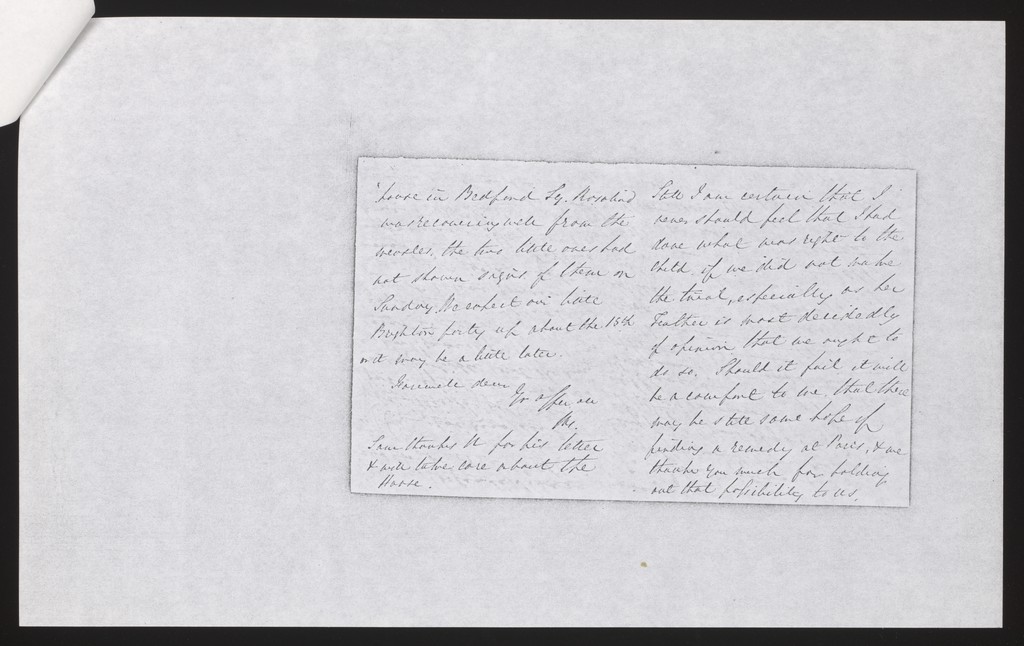 house in Bedford Sq. Rosalind
was recovering well from the
measles, the two little ones had
not shown signs of them on
Sunday. We expect our little
Brighton party up about the 15th
or it may be a little later.
Farewell dear
Yr affec
Sam thanks for his letter
& will take care about the
House.
Still I am certain that I
never should feel that I had
done what was right to the
child if we did not make
the trial, especially as her
Father is most decidedly
of opinion that we ought to
do so. Should it fail it will
be a comfort to me, that there
may be still some hope of
finding a remedy at Paris, & we
thank you much for holding
out that possibility to us.